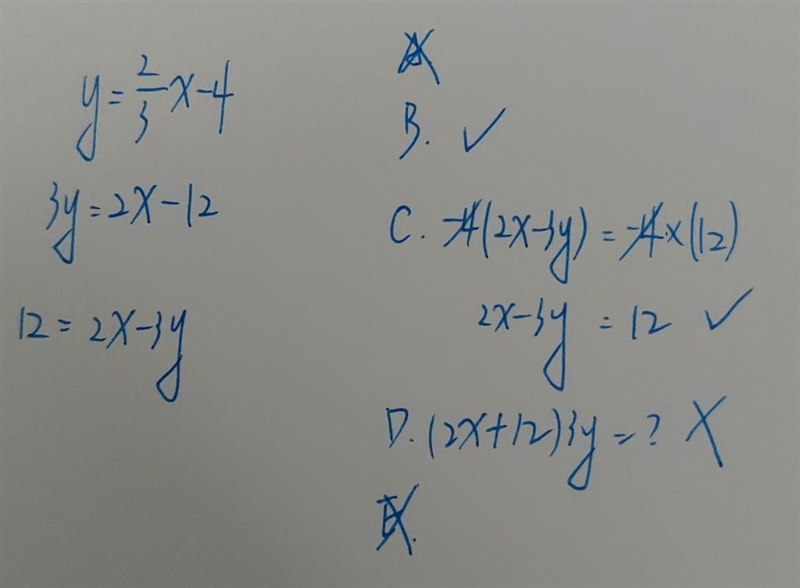 y = 2/3 x - 4
3y = 2x - 12
12 = 2x - 3y
A
B. ✓
C. -4(2x-3y) = -4×(12)
2x-3y = 12 ✓
D. (2x+12)3y = ? ✗
E.